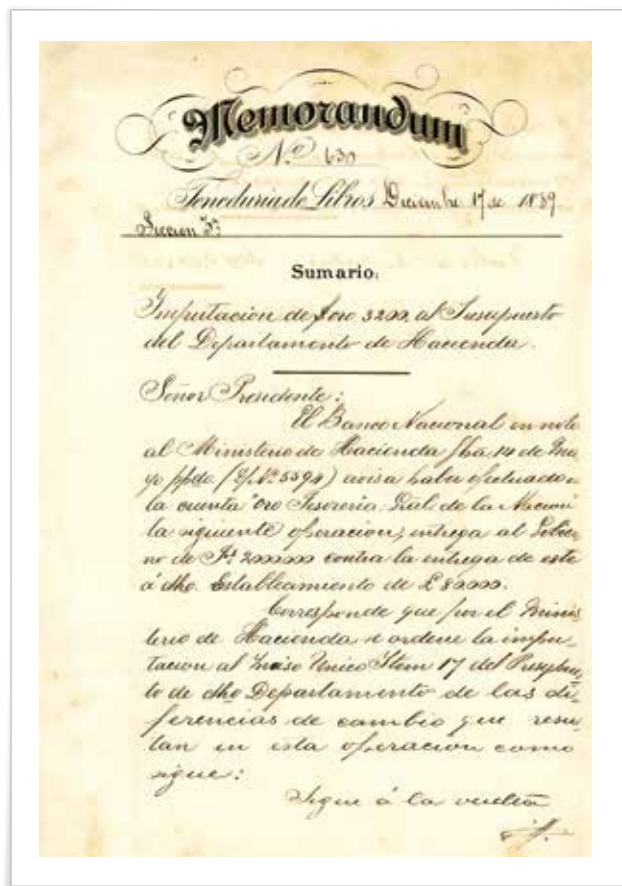 Memorandum
N.º 630
Teneduria de Libros Diciembre 17 de 1889
Seccion 3ª
Sumario.
Imputacion de $ oro 3200 al Presupuesto
del Departamento de Hacienda.
Señor Presidente:
El Banco Nacional en nota
al Ministerio de Hacienda fha 14 de Ma-
yo ppdo. Nº 5594) avisa haber efectuado en
la cuenta "oro Tesoreria Gral. de la Nacion
la siguiente operacion; entrega al Gobier-
no de 2000000 contra la entrega de este
á dho. Establecimiento de £ 80000.
Corresponde que por el Minis-
terio de Hacienda se ordene la impu-
tacion al Inciso Unico Item 17 del Presupues-
to de dho Departamento de las di-
ferencias de cambio que resul-
tan en esta operacion como
sigue:
Sigue á la vuelta